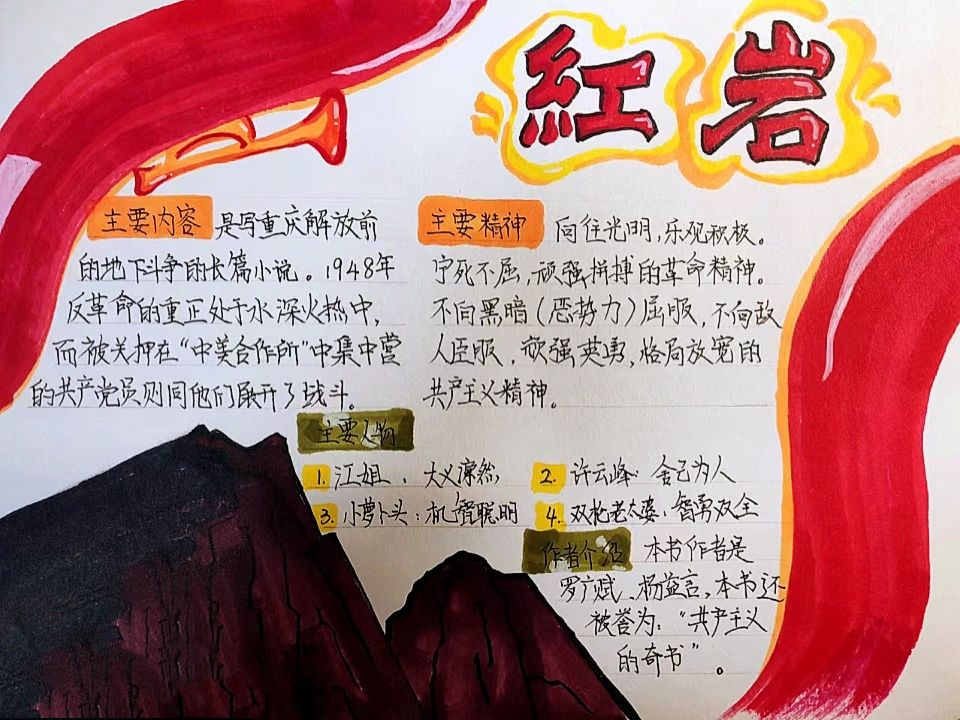 紅岩
主要内容 是写重庆解放前
的地下斗争的长篇小说。1948年
反革命的重正处于水深火热中,
而被关押在“中美合作所”中集中营
的共产党员则同他们展开了战斗。
主要精神 向往光明,乐观积极。
宁死不屈,顽强拼搏的革命精神。
不向黑暗(恶势力)屈服,不向敌
人臣服,顽强英勇,格局放宽的
共产主义精神。
主要人物
1. 江姐: 大义凛然
2. 许云峰: 舍己为人
3. 小萝卜头:机智聪明
4. 双枪老太婆:智勇双全
作者介绍 本书作者是
罗广斌、杨益言,本书还
被誉为:“共产主义
的奇书”。